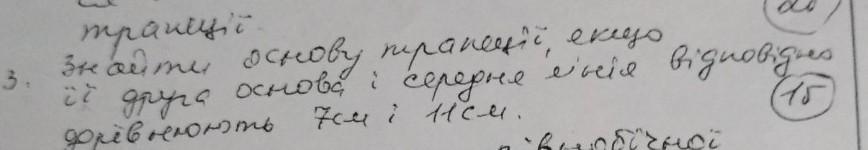 20
трапеції.
3. Знайти основу трапеції, якщо
її друга основа і середня лінія відповідно
дорівнюють 7см і 11см.
15
рівнобічної